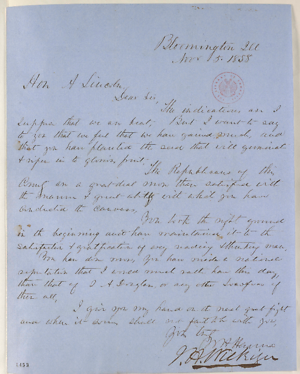 Bloomington Ill
Nov 5. 1858
Hon A Lincoln
Dear Sir
The indications are I
suppose that we are beat. But I want to say
to you that we feel that we have gained much, and
that you have planted the seed that will germinate
& ripen in to glorious fruit.
The Republicans of this
County are a great deal more than satisfied with
the manner & great ability with which you have
conducted the canvass.
You took the right ground
in the beginning and have maintained it to the
satisfaction & gratification of every
man.
you have made a national
reputation that I would much rather have this day,
than that of S. A Douglas or any other
of them all.
I give you my hand on the next great fight
and when it comes shall
with you.
Yours truly